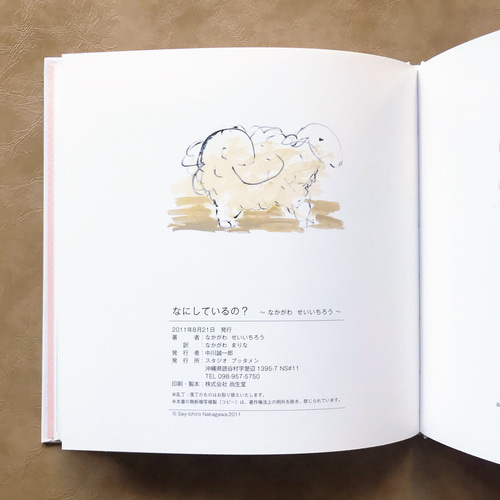 なにしているの？ ～ なかがわ せいいちろう ～
2011年8月21日 発行
著 者：なかがわ せいいちろう
訳 なかがわ まりな
発 行 者：中川誠一郎
発 行 所：スタジオ ブッタメン
沖縄県読谷村字楚辺 1395-7 NS#11
TEL 098-957-5750
印刷・製本：株式会社 尚生堂
※乱丁・落丁のものはお取り替えいたします。
※本書の無断複写複製（コピー）は、著作権法上の例外を除き、禁じられています。
© Say-ichiro Nakagawa 2011